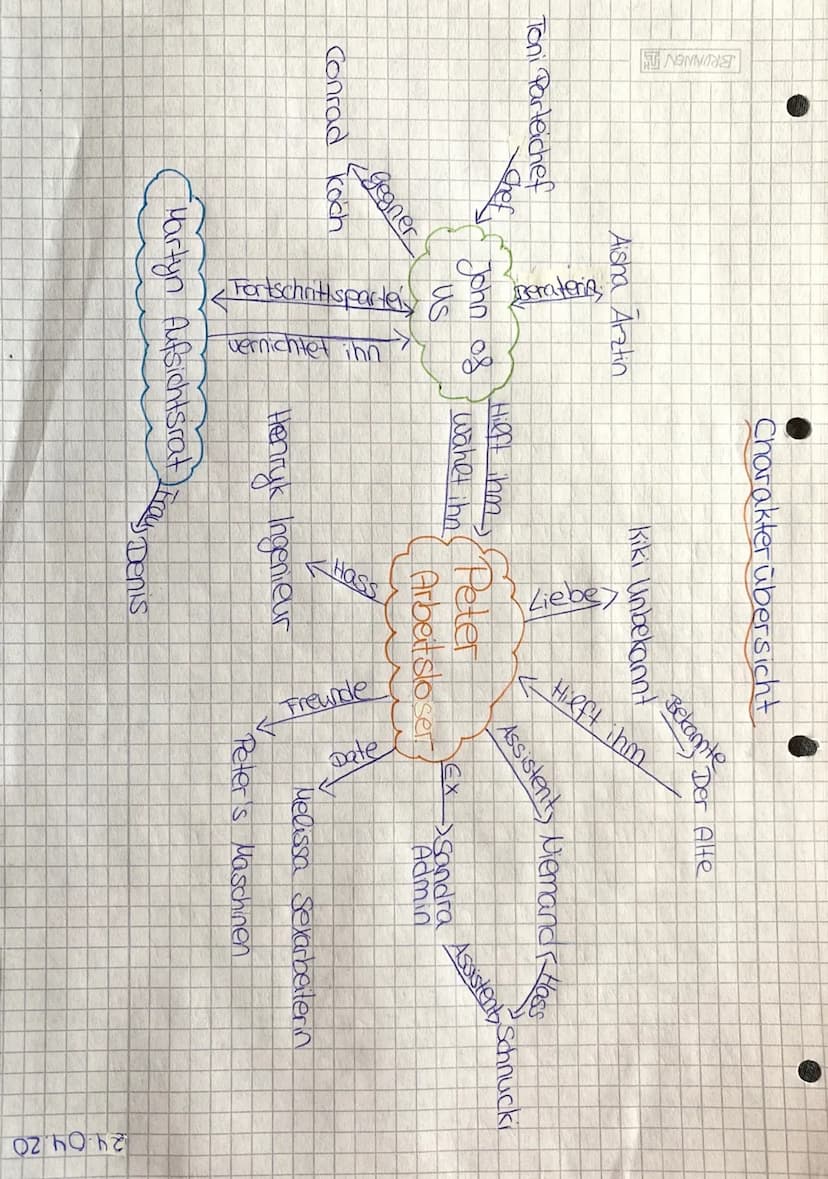 Charakterübersicht
BRUNNEN
Toni Parteichef
Chef
Aisha Ärztin
Beraterin
Conrad Koch
Gegner
John of
Us
Fortschrittspartei
vernichtet ihn
Martyn Aufsichtsrat
Frau
Denis
Hilft ihm
Wählt ihn
Kiki Unbekannt
Liebe
Bekannte
Der Alte
Hilft ihm
Peter
Arbeitsloser
Hass
Henryk Ingenieur
Freunde
Peter's Maschinen
Date
Melissa Sexarbeiterin
Ex
Sandra
Admin
Assistent
Niemand
Hass
Assistent
Schnucki
24.04.20